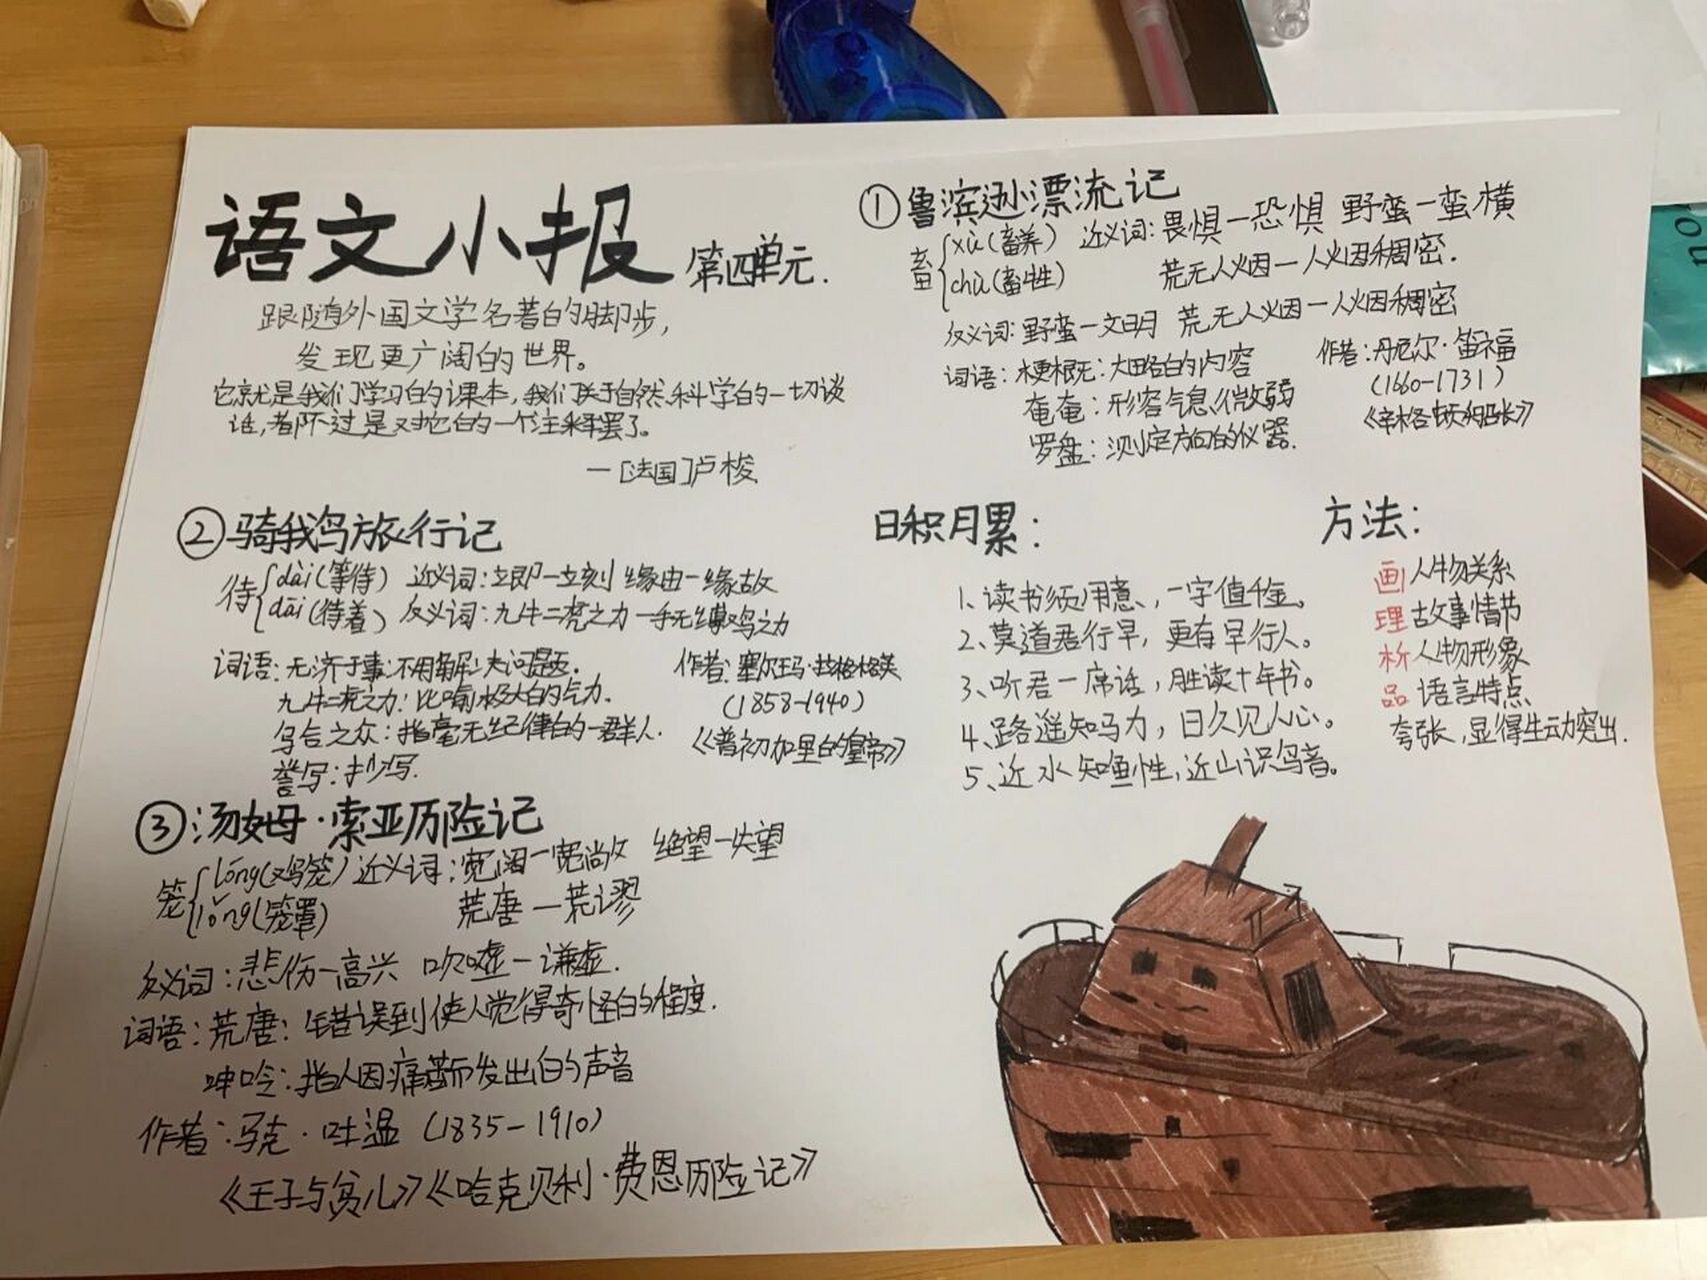 语文小报 第四单元.
跟随外国文学名著的脚步,
发现更广阔的世界。
它就是我们学习的课本,我们关于自然科学的一切谈
话,都不过是对它的一个注释罢了。
—[法国]卢梭
①鲁滨逊漂流记
畜 xù(畜养) 近义词:畏惧—恐惧 野蛮—蛮横
chù(畜牲) 荒无人烟—人烟稠密.
反义词:野蛮—文明 荒无人烟—人烟稠密
词语:梗概:大略的内容
奄奄:形容气息微弱
罗盘:测定方向的仪器.
作者:丹尼尔·笛福
(1660-1731)
《辛格顿船长》
②骑鹅旅行记
待 dài(等待) 近义词:立即—立刻 缘由—缘故
dāi(待着) 反义词:九牛二虎之力—手无缚鸡之力
词语:无济于事:不用解决问题.
九牛二虎之力:比喻极大的气力.
乌合之众:指毫无纪律的一群人.
誊写:抄写.
作者:塞尔玛·拉格洛芙
(1858-1940)
《普初加里的皇帝》
③汤姆·索亚历险记
笼 lóng(鸡笼) 近义词:宽阔—宽敞 绝望—失望
lǒng(笼罩) 荒唐—荒谬
反义词:悲伤—高兴 吹嘘—谦虚.
词语:荒唐:错误到使人觉得奇怪的程度.
呻吟:指人因痛苦而发出的声音
作者:马克·吐温 (1835-1910)
《王子与贫儿》《哈克贝利·费恩历险记》
日积月累:
1、读书须用意,一字值千金。
2、莫道君行早,更有早行人。
3、听君一席话,胜读十年书。
4、路遥知马力,日久见人心。
5、近水知鱼性,近山识鸟音。
方法:
画 人物关系
理 故事情节
析 人物形象
品 语言特点
夸张,显得生动突出.